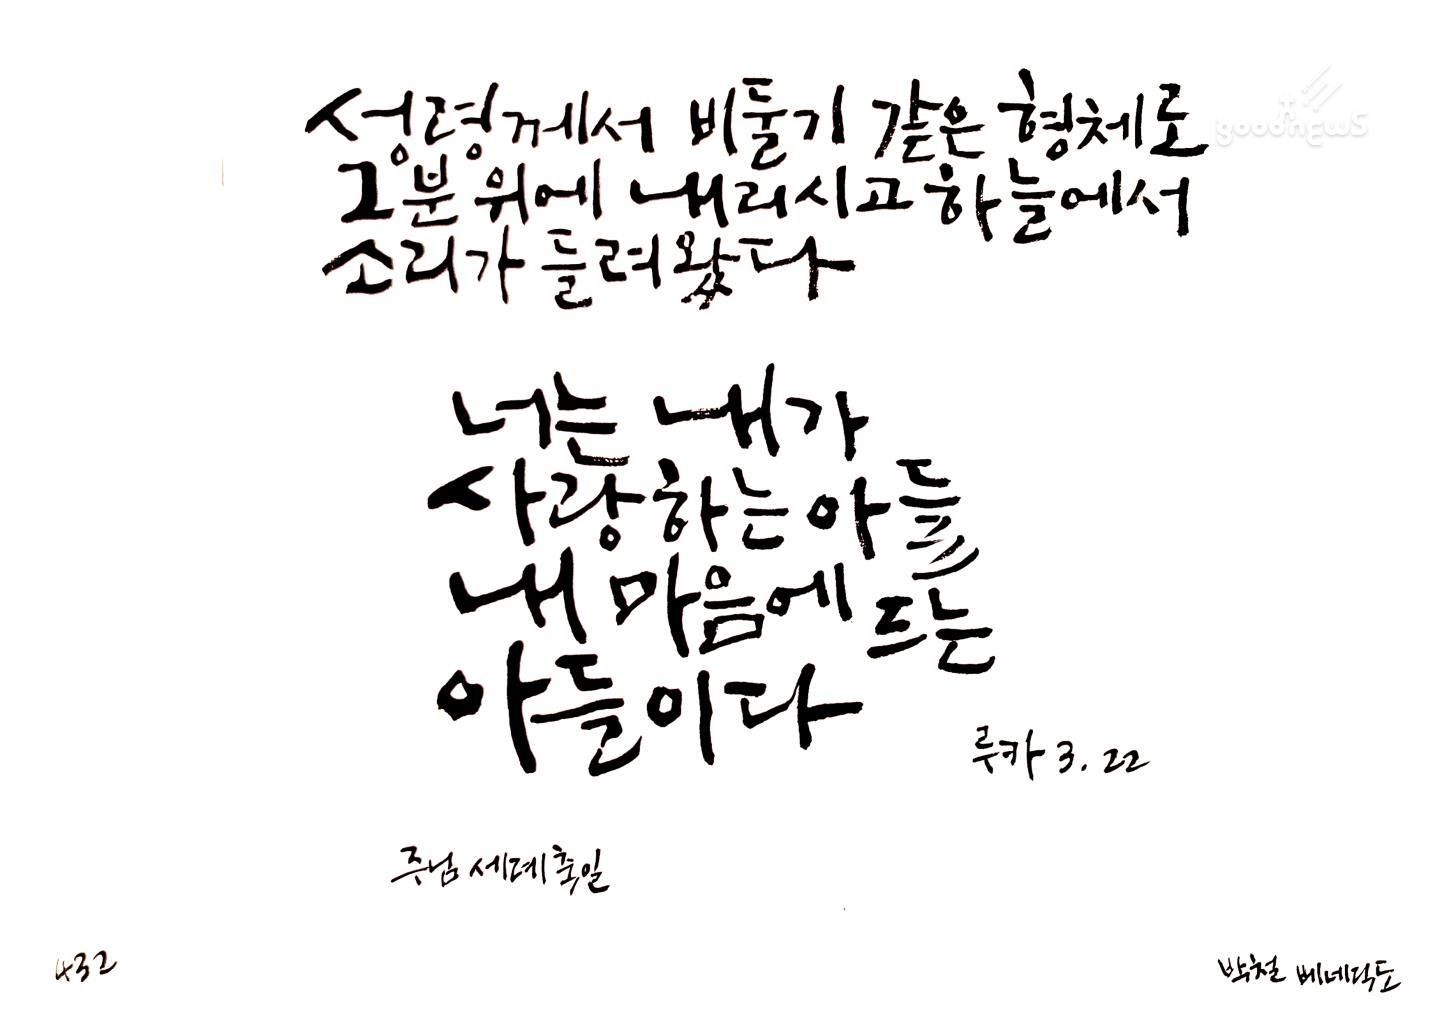 성령께서 비둘기 같은 형체로
그분 위에 내리시고 하늘에서
소리가 들려왔다
너는 내가
사랑하는 아들
내 마음에 드는
아들이다
루카 3. 22
주님 세례 축일
432
박철 베네딕토
goodnews